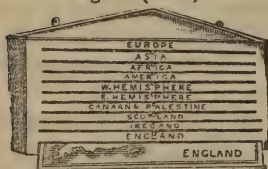 EUROPE
ASIA
AFRICA
AMERICA
W.HEMISPHERE
E.HEMISPHERE
CANAAN & PALESTINE
SCOTLAND
IRELAND
ENGLAND
ENGLAND